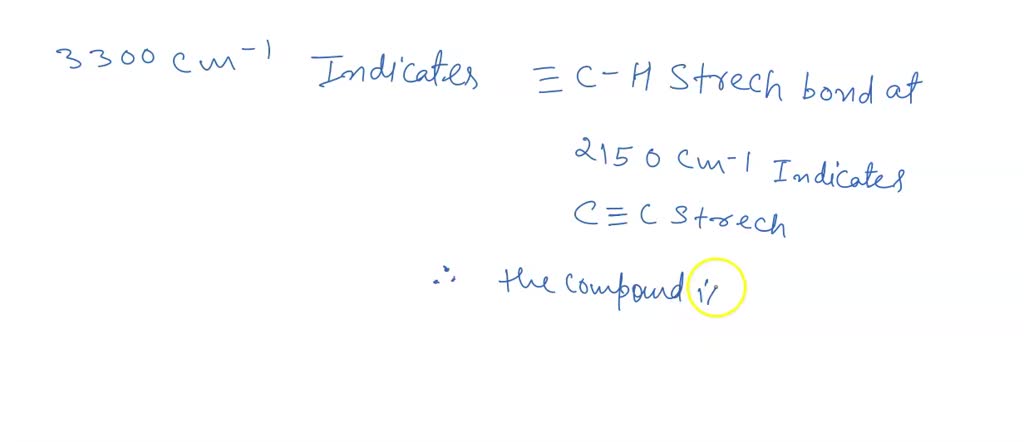 3300 cm⁻¹ Indicates ≡ C-H Strech bond at
2150 cm-1 Indicates
C≡C Strech
∴ the compound is